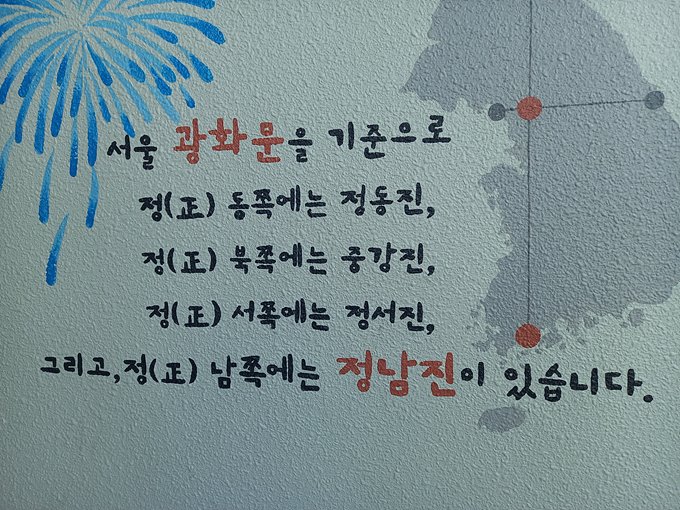 서울 광화문을 기준으로
정(正) 동쪽에는 정동진,
정(正) 북쪽에는 중강진,
정(正) 서쪽에는 정서진,
그리고, 정(正) 남쪽에는 정남진이 있습니다.